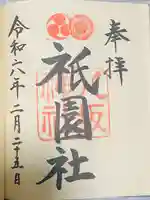 奉拝
祇園社
令和六年二月二十五日